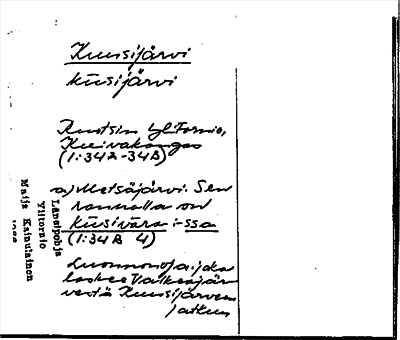 Kuusijärvi
kūsijärvi
Ruotsin Yl.Tornio,
Kuivakangas
(1:34A-34B)
a) Metsäjärvi. Sen
rannalla on
kūsivāra i-ssa
(1:34 B 4)
Luonnonoja, joka
laskee Valkeajär
vestä Kuusijärveen
jatkuu
Länsipohja
Ylitornio
Maija Kainulainen